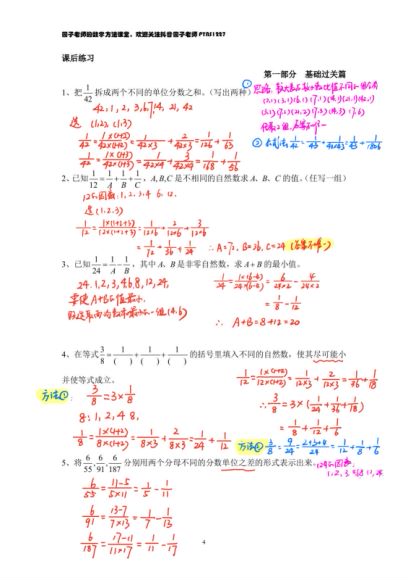 园子老师的数学方法课堂、欢迎关注抖音园子老师
课后练习
第一部分 基础过关篇
1、把1/42拆成两个不同的单位分数之和。(写出两种)
42: 1, 2, 3, 6, 7, 14, 21, 42
选 (1,2), (1,3)
1/42 = 1×(1+2)/42×(1+2) = 1/42×3 + 2/42×3 = 1/126 + 1/63
1/42 = 1×(1+3)/42×(1+3) = 1/42×4 + 3/42×4 = 1/168 + 1/56
2、已知1/12 = 1/A + 1/B + 1/C，A,B,C 是不相同的自然数求 A、B、C 的值。(任写一组)
12的因数: 1, 2, 3, 4, 6, 12.
选 (1.2.3)
1/12 = 1×(1+2+3)/12×(1+2+3) = 1/12×6 + 2/12×6 + 3/12×6
= 1/72 + 1/36 + 1/24 ∴ A=72, B=36, C=24 (答案不唯一)
3、已知1/24 = 1/A − 1/B，其中 A、B 是非零自然数，求 A+B 的最小值。
24: 1, 2, 3, 4, 6, 8, 12, 24,
要使A+B的值最小,
1/24 = 1×(6-4)/24×(6-4) = 6/24×2 − 4/24×2
= 1/8 − 1/12
∴ A+B = 8+12 = 20
4、在等式3/8 = 1/( ) + 1/( ) + 1/( ) 的括号里填入不同的自然数，使其尽可能小
并使等式成立。
方法①: 3/8 = 3×1/8
8: 1, 2, 4, 8,
1/8 = 1×(1+2)/8×(1+2) = 1/8×3 + 2/8×3 = 1/24 + 1/12
1/12 = 1×(1+2)/12×(1+2) = 1/12×3 + 2/12×3 = 1/36 + 1/18
∴ 3/8 = 3×(1/24 + 1/36 + 1/18)
= 1/8 + 1/12 + 1/6
方法② 3/8 = 9/24 = 2+3+4/24 = 1/12 + 1/8 + 1/6
5、将6/55, 6/91, 6/187分别用两个分母不同的分数单位之差的形式表示出来.
6/55 = 11-5/5×11 = 1/5 − 1/11
6/91 = 13-7/7×13 = 1/7 − 1/13
6/187 = 17-11/11×17 = 1/11 − 1/17
4